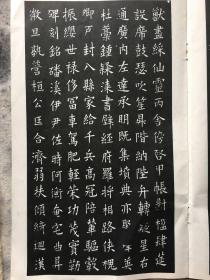 獸畫綵仙靈丙舍傍啓甲帳對楹肆筵
設席鼓瑟吹笙昇階納陛弁轉疑星右
通廣內左達承明既集墳典亦聚羣英
杜藁鍾隸漆書壁經府羅將相路俠槐
卿戶封八縣家給千兵高冠陪輦驅轂
振纓世祿侈富車駕肥輕策功茂實勒
碑刻銘磻溪伊尹佐時阿衡奄宅曲阜
微旦孰營桓公匡合濟弱扶傾綺迴漢